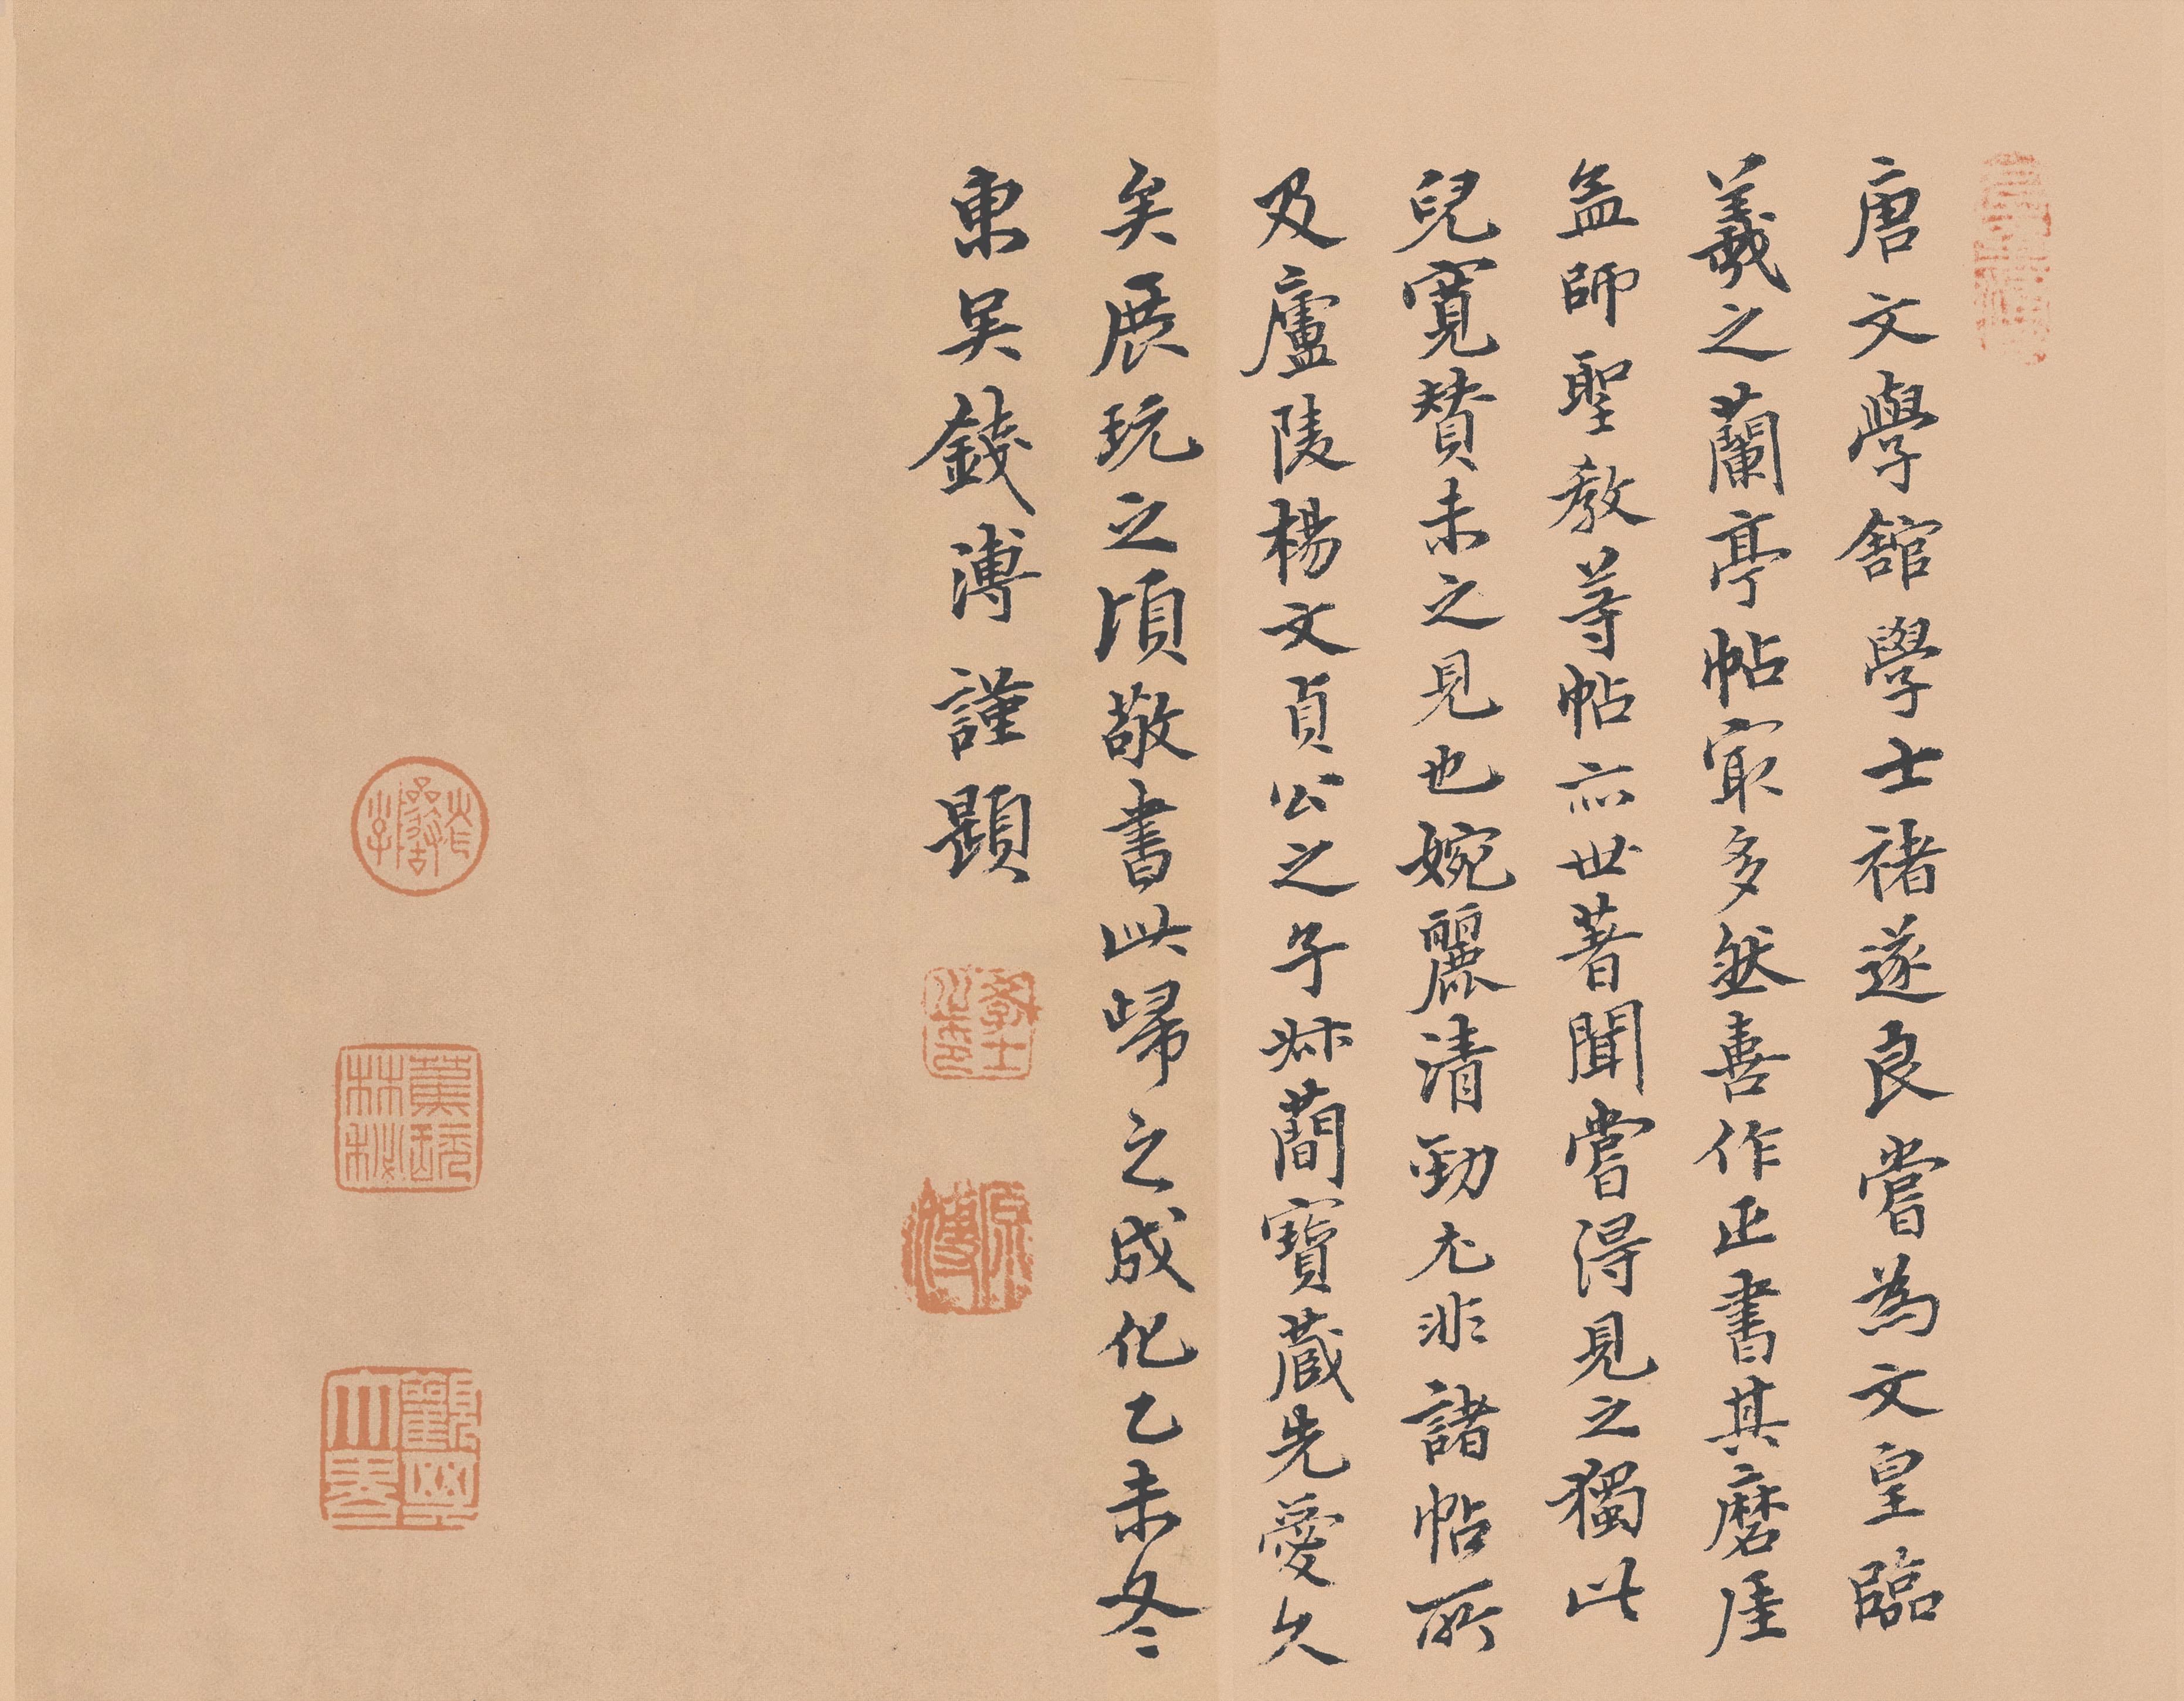 唐文學館學士褚遂良嘗為文皇臨
羲之蘭亭帖冣多然善作正書其磨厓
孟師聖教等帖亦世著聞嘗得見之獨此
兒寬贊未之見也婉麗清勁尤非諸帖所
及廬陵楊文貞公之子叔蕳寶蔵先愛久
矣展玩之頃敬書此歸之成化乙未冬
東吴錢溥謹題
學士
原溥
蕉林秘玩
觀其大略